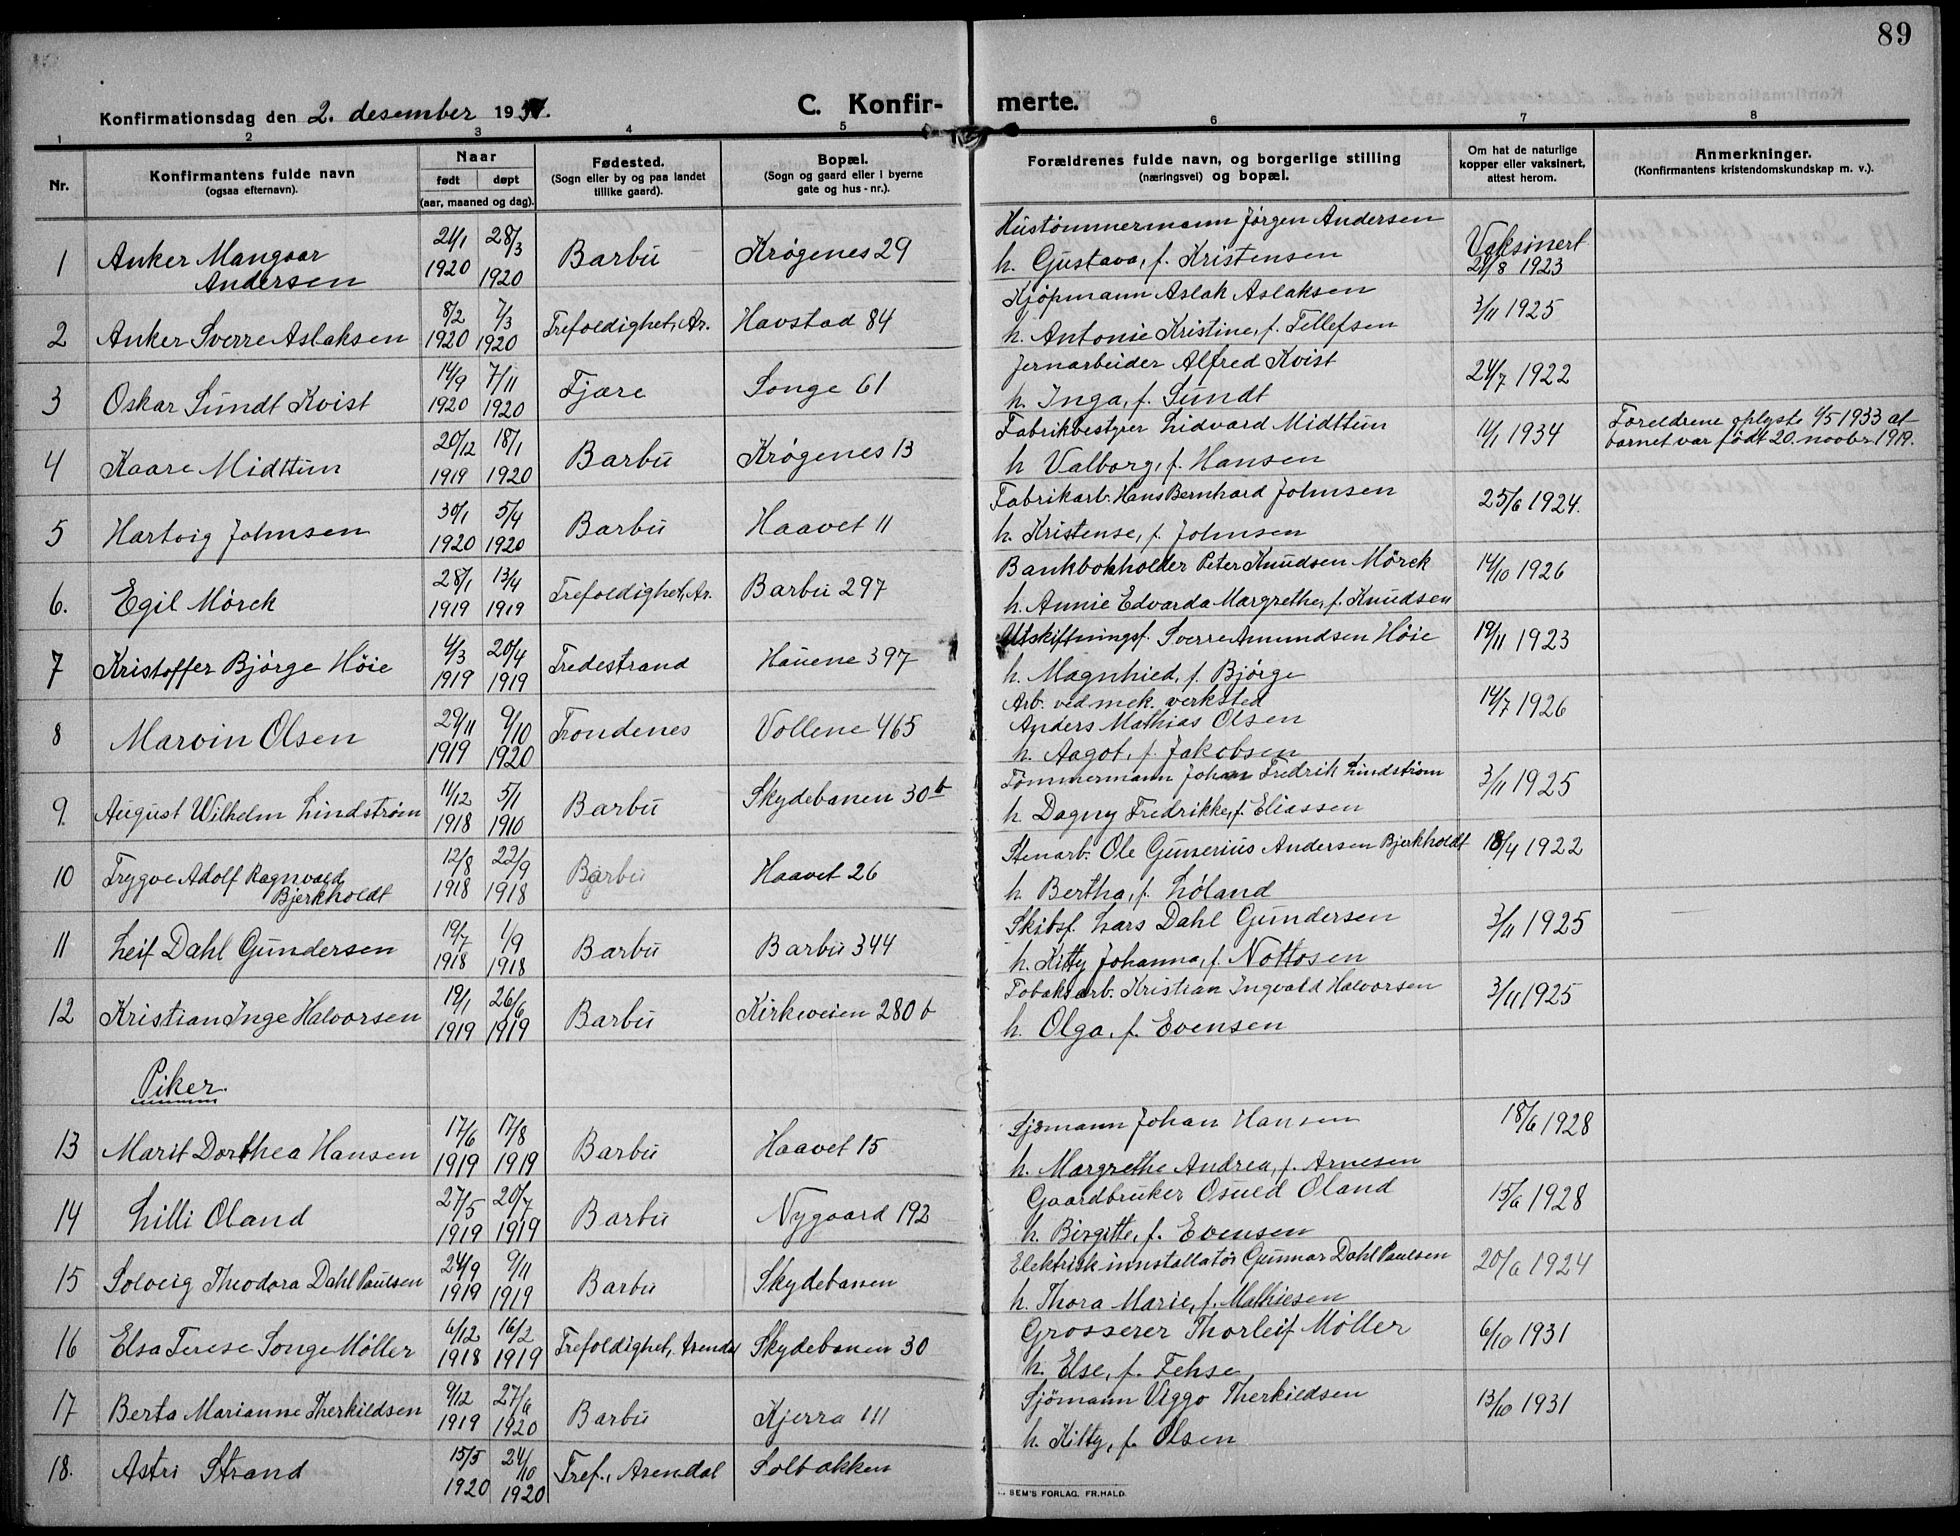 89
Konfirmationsdag den 2. desember 193
C. Konfir- merte.
1 2 3 4 5 6 7 8
Nr.
Konfirmantens fulde navn
(ogsaa efternavn).
Naar
født døpt
(aar, maaned og dag).
Fødested.
(Sogn eller by og paa landet
tillike gaard).
Bopæl.
(Sogn og gaard eller i byerne
gate og hus-nr.).
Forældrenes fulde navn, og borgerlige stilling
(næringsvei) og bopæl.
Om hat de naturlige
kopper eller vaksinert,
attest herom.
Anmerkninger.
(Konfirmantens kristendomskundskap m. v.).
Hustømmermann Jørgen Andersen
1 Anker Mangaar 24/1 28/3 Barbu Krøgenes 29 h. Gustava, f. Kristensen Vaksinert
Andersen 1920 1920 24/8 1923
Kjøpmann Aslak Aslaksen
2 Anker Sverre Aslaksen 8/2 7/3 Trefoldighet, Ar. Havstad 84 3/11 1925
1920 1920 h. Antonie Kristine, f. Tellefsen
Jernarbeider Alfred Kvist
3 Oskar Sundt Kvist 14/9 7/11 Fjære Songe 61 24/7 1922
1920 1920 h. Inga, f. Sundt
Fabrikbestyrer Lidvard Midttun
4 Kaare Midttun 20/12 18/1 Barbu Krøgenes 13 11/1 1934 Foreldrene oplyste 4/5 1933 at
1919 1920 h Valborg, f. Hansen barnet var født 20. novbr 1919.
Fabrikarb. Hans Bernhard Johnsen
5 Hartvig Johnsen 30/1 5/4 Barbu Haavet 11 25/6 1924.
1920 1920 h. Kristense, f. Johnsen
Bankbokholder Peter Knudsen Mørck
6. Egil Mørck 28/1 13/4 Trefoldighet, Ar. Barbu 297 14/10 1926
1919 1919 h. Annie Edvarda Margrethe, f. Knudsen
Utskiftningsf. Sverre Amundsen Høie
7 Kristoffer Bjørge Høie 4/3 20/4 Tvedestrand Hauene 397 19/11 1923
1919 1919 h. Magnhied, f. Bjørge
Arb. ved mek. verksted
8 Marvin Olsen 29/11 9/10 Trondenes Vollene 465 14/7 1926
Anders Mathias Olsen
1919 1920 h. Aagot, f. Jakobsen
Tømmermann Johan Fredrik Lindstrøm
9. August Wilhelm Lindstrøm 11/12 5/1 Barbu Skydebanen 30 b 3/11 1925
1918 1910 h Dagny Fredrikke, f. Eliassen
Stenarb. Ole Gunerius Andersen Bjerkholdt
10 Trygve Adolf Ragnvald 12/8 22/9 Barbu Haavet 26 18/4 1922
Bjerkholdt 1918 1918 h. Bertha, f. Løland
Skibsf. Lars Dahl Gundersen
11 Leif Dahl Gundersen 19/7 1/9 Barbu Barbu 344 3/11 1925
1918 1918 h. Kitty Johanna, f. Nottosen
Tobaksarb. Kristian Ingvald Halvorsen
12 Kristian Inge Halvorsen 19/1 26/6 Barbu Kirkeveien 280 b 3/11 1925
1919 1919 h. Olga, f. Evensen
Piker.
Sjømann Johan Hansen
13 Marit Dorthea Hansen 17/6 17/8 Barbu Haavet 15 18/6 1928
1919 1919 h. Margrethe Andrea, f. Arnesen
Gaardbruker Osuld Oland
14 Lilli Oland 27/5 20/7 Barbu Nygaard 192 15/6 1928
1919 1919 h. Birgitte, f. Evensen
Elektrisk innstallatør Gunnar Dahl Paulsen
15 Solveig Theodora Dahl Paulsen 24/9 9/11 Barbu Skydebanen 20/6 1924
1919 1919 h. Thora Marie, f. Mathiesen
Grosserer Thorleif Møller
16 Elsa Terese Songe Møller 6/12 16/2 Trefoldighet, Arendal Skydebanen 30 6/10 1931
1918 1919 h. Else, f. Fehse
Sjömann Viggo Therkildsen
17 Berta Marianne Therkildsen 9/12 27/6 Barbu Kjerra 111 13/10 1931
1919 1920 h. Kitty, f. Olsen
18. Astri Strand 15/5 24/10 Tref., Arendal Solbakken
1920 1920
SEM'S FORLAG, FR.HALD.